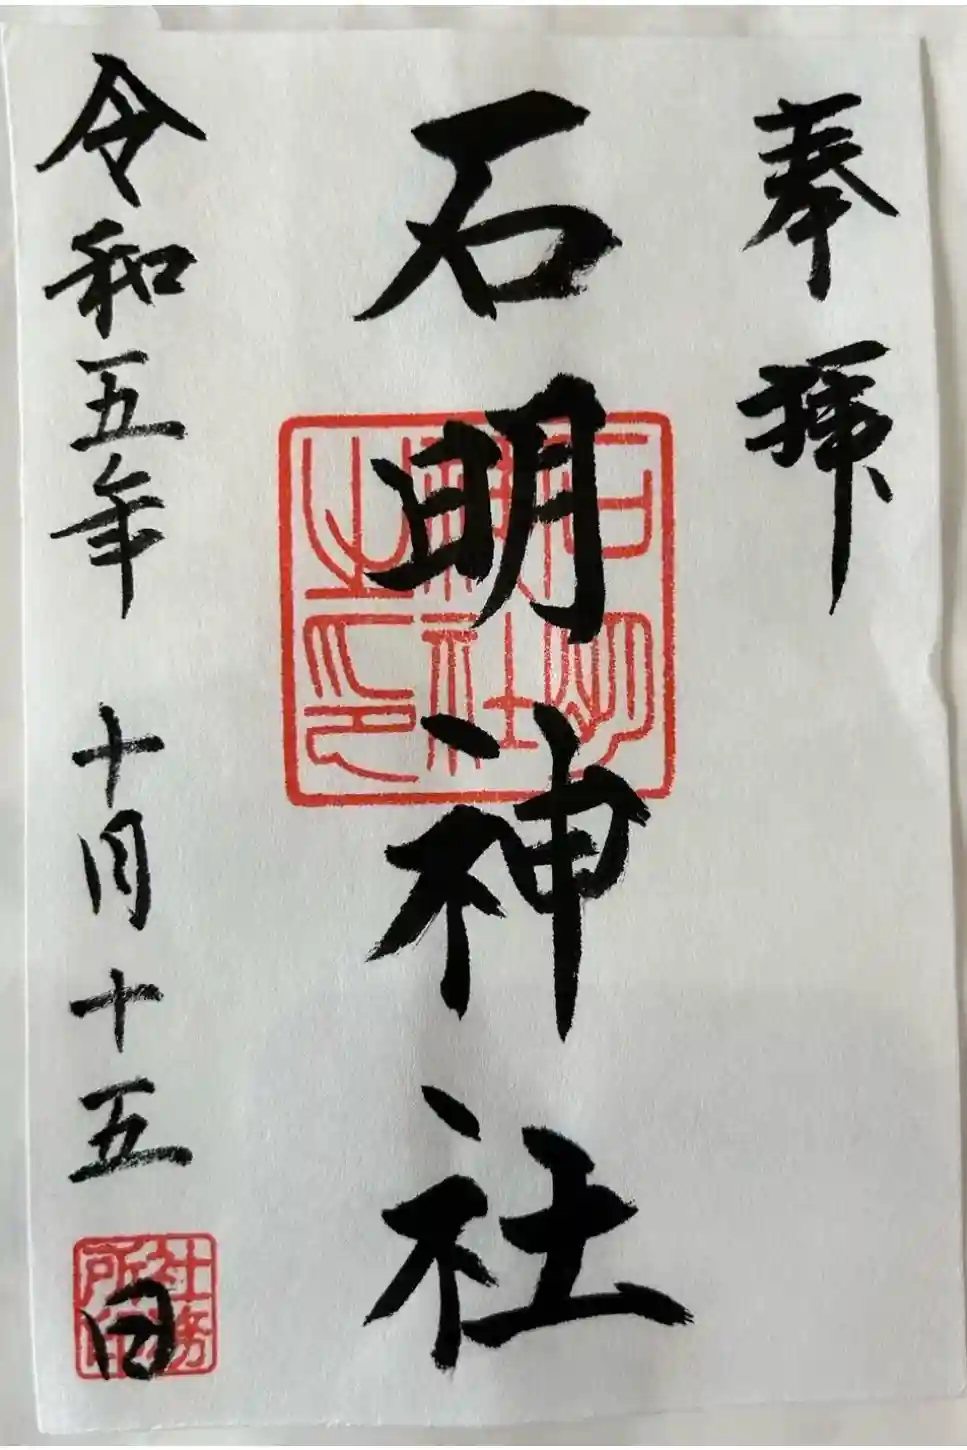 奉拝
石明神社
石明神社之印
令和五年 十月十五日
社務所印